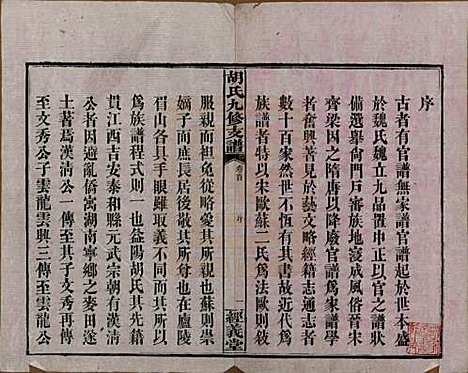 序
古者有官譜無家譜官譜起於世本盛
於魏氏魏立九品置中正
備選舉尚門戶審族地寖成風俗晉宋
齊梁因之隋唐以降廢官譜爲家譜學
者奮興著見於藝文略經籍志通志者
數十百家然世不恆有其書故近代爲
族譜者特以宋歐蘇二氏爲法歐則敍
胡氏九修支譜
卷首
序
一
經義堂
服親而也免從略愛其所親也蘇則敍
嫡子而庶長居後敬其所尊也在廬陵
眉山各具手眼雖取義不同而其所以
爲族譜程式則一也益陽胡氏其先籍
貫江西吉安泰和縣元武宗朝有漢清
公者因避亂僑寓湖南寧鄉之麥田遂
土著焉漢清公一傳至其子文秀公再傳
至文秀公子雲龍雲興三傳至雲龍公